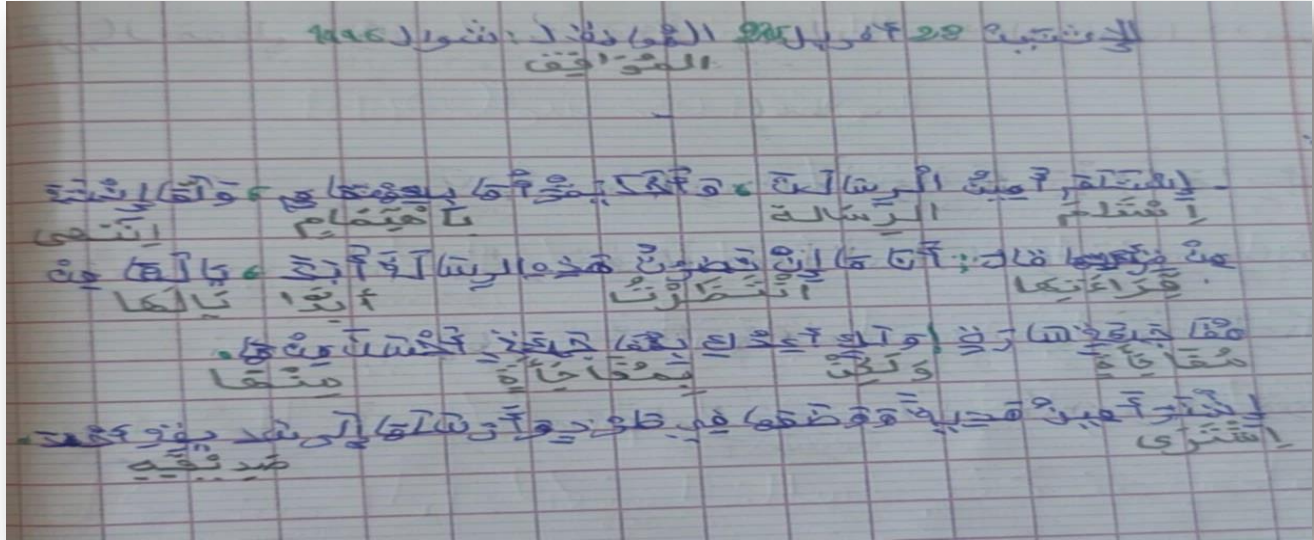 الإثنين 28 أفريل 2025 الموافق ل: شوال 1446
الموافق
إستلم أمين الرسالة، وقرأ بإهتمام، ولما إنتهى
اِسْتَلَمَ الرِّسَالة بِاهْتِمَامٍ اِنْتَهَى
من قراءتها قال: أنا ما إنتظرت هذه الرسالة أبدا، يالها من
قِرَاءَتِهَا اِنْتَظَرْتُ أَبَدًا يَالَهَا
مفاجأة سارة! ولكن أعدك بمفاجأة أحسن منها.
مُفَاجَأَة وَلَكِنْ بِمُفَاجَأَةٍ مِنْهَا
إشترى أمين هدية ووضعها في طرد وأرسلها إلى صديقه أحمد.
اِشْتَرَى صَدِيقِهِ